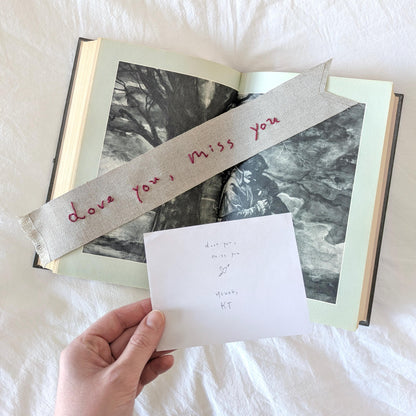 love you, miss you
love you,
miss you
KT